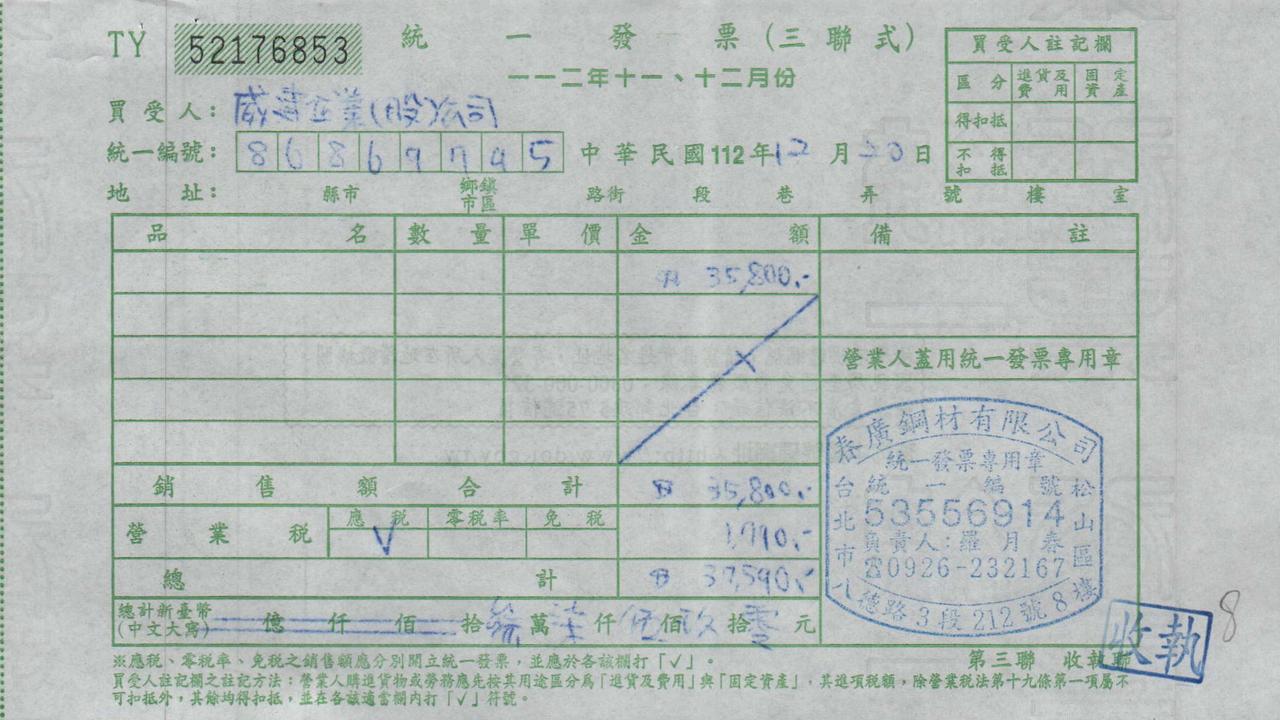 TY 52176853 統一發票(三聯式)
一一二年十一、十二月份
買受人註記欄
區分 進貨及費用 固定資產
得扣抵
不得扣抵
買受人: 企業(股)公司
統一編號: 中華民國112年12月20日
地址: 縣市 鄉鎮市區 路街 段 巷 弄 號 樓 室
品名 數量 單價 金額 備註
35,800.-
營業人蓋用統一發票專用章
銷售額合計 35,800.-
營業稅 應稅 √ 零稅率 免稅 1,790.-
總計 37,590.-
總計新臺幣(中文大寫) 億 仟 佰 拾 萬 柒 仟 伍 佰 玖 拾 零 元
春廣鋼材有限公司
統一發票專用章
統一編號
53556914
負責人:羅月春
☎0926-232167
台北市松山區
八德路3段212號8樓
※應稅、零稅率、免稅之銷售額應分別開立統一發票,並應於各該欄打「√」。
第三聯 收執聯
收執
8
買受人註記欄之註記方法:營業人購進貨物或勞務應先按其用途區分為「進貨及費用」與「固定資產」,其進項稅額,除營業稅法第十九條第一項屬不
可扣抵外,其餘均得扣抵,並在各該適當欄內打「√」符號。